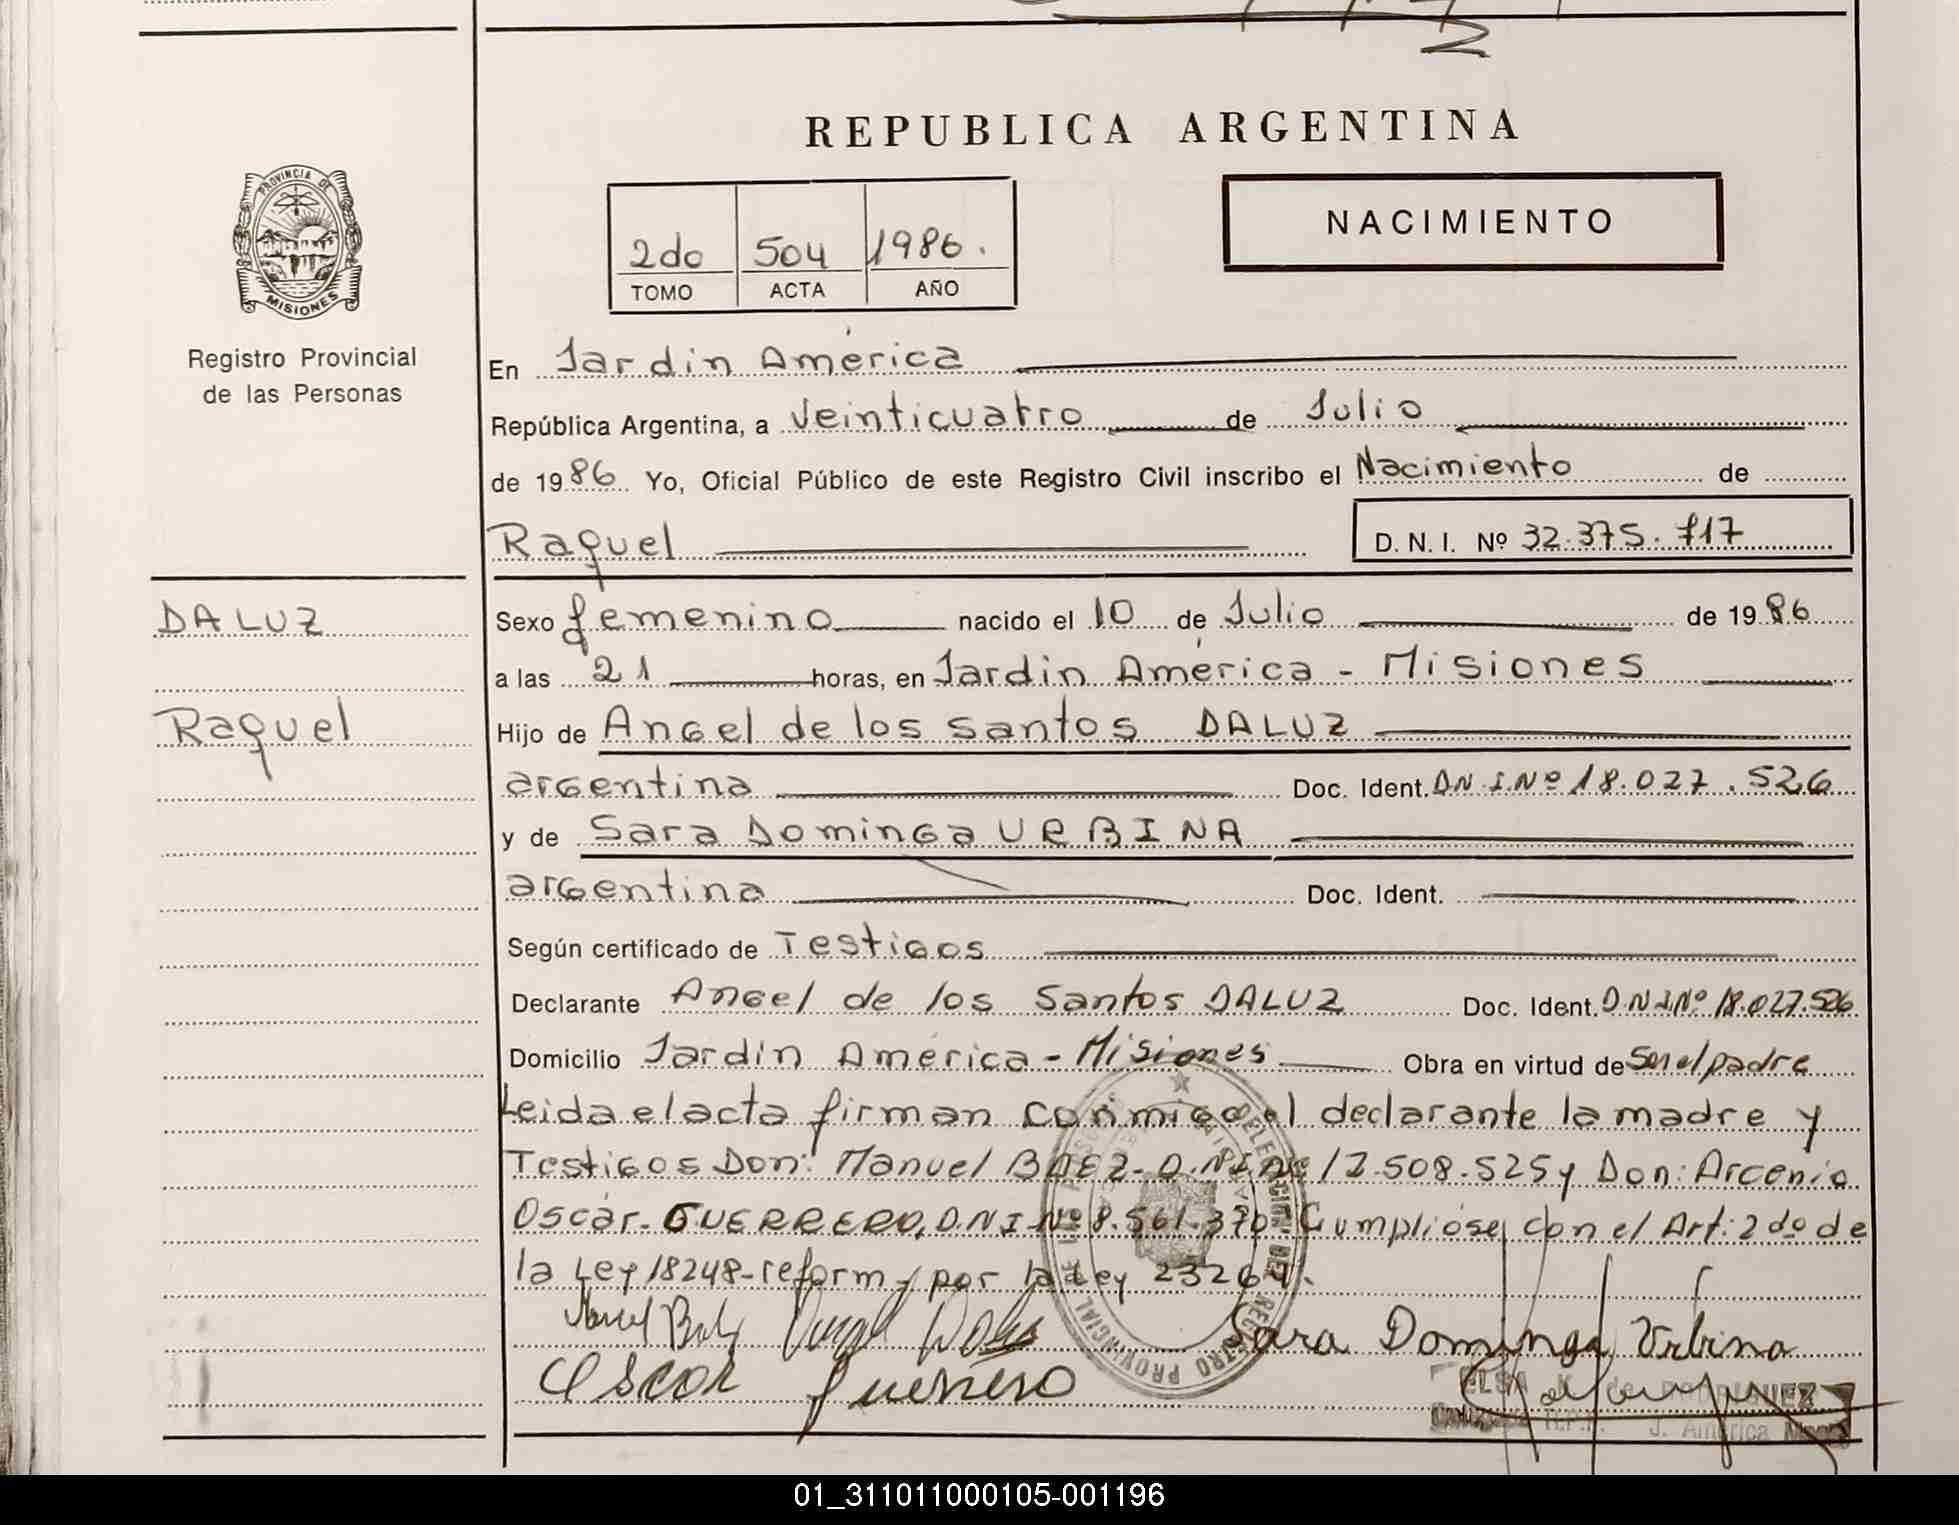 REPUBLICA ARGENTINA
PROVINCIA DE
MISIONES
Registro Provincial
de las Personas
2do 504 1986.
TOMO ACTA AÑO
NACIMIENTO
En Jardin América
República Argentina, a Veinticuatro de Julio
de 1986 Yo, Oficial Público de este Registro Civil inscribo el Nacimiento de
Raquel D. N. I. Nº 32.375.717
DALUZ
Raquel
Sexo femenino nacido el 10 de Julio de 1986
a las 21 horas, en Jardin América - Misiones
Hijo de Angel de los santos DALUZ
argentina Doc. Ident. D.N.I.Nº 18.027.526
y de Sara Dominga URBINA
argentina Doc. Ident.
Según certificado de Testigos
Declarante Angel de los Santos DALUZ Doc. Ident. D.N.I.Nº 18.027.526
Domicilio Jardin América - Misiones Obra en virtud de Ser el padre
Leida el acta firman conmigo el declarante la madre y
Testigos Don: Manuel BAEZ-D.N.I.Nº 12.508.525 y Don: Arcenio
Oscar-GUERRERO, D.N.I-Nº 8.561.370- Cumpliose con el Art: 2do de
la Ley 18248-reform, por la Ley 23264.
Sara Dominga Urbina
Oscar Guerrero
ELSA
J. América
REGISTRO PROVINCIAL DE LAS
01_311011000105-001196